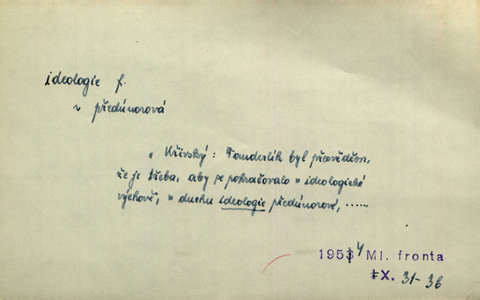 ideologie f.
~ předúnorová
„ Křivský : Fanderlík byl přesvědčen,
že je třeba, aby se pokračovalo v ideologické
výchově, v duchu ideologie předúnorové, .....
1954 Ml. fronta
IX. 31-36